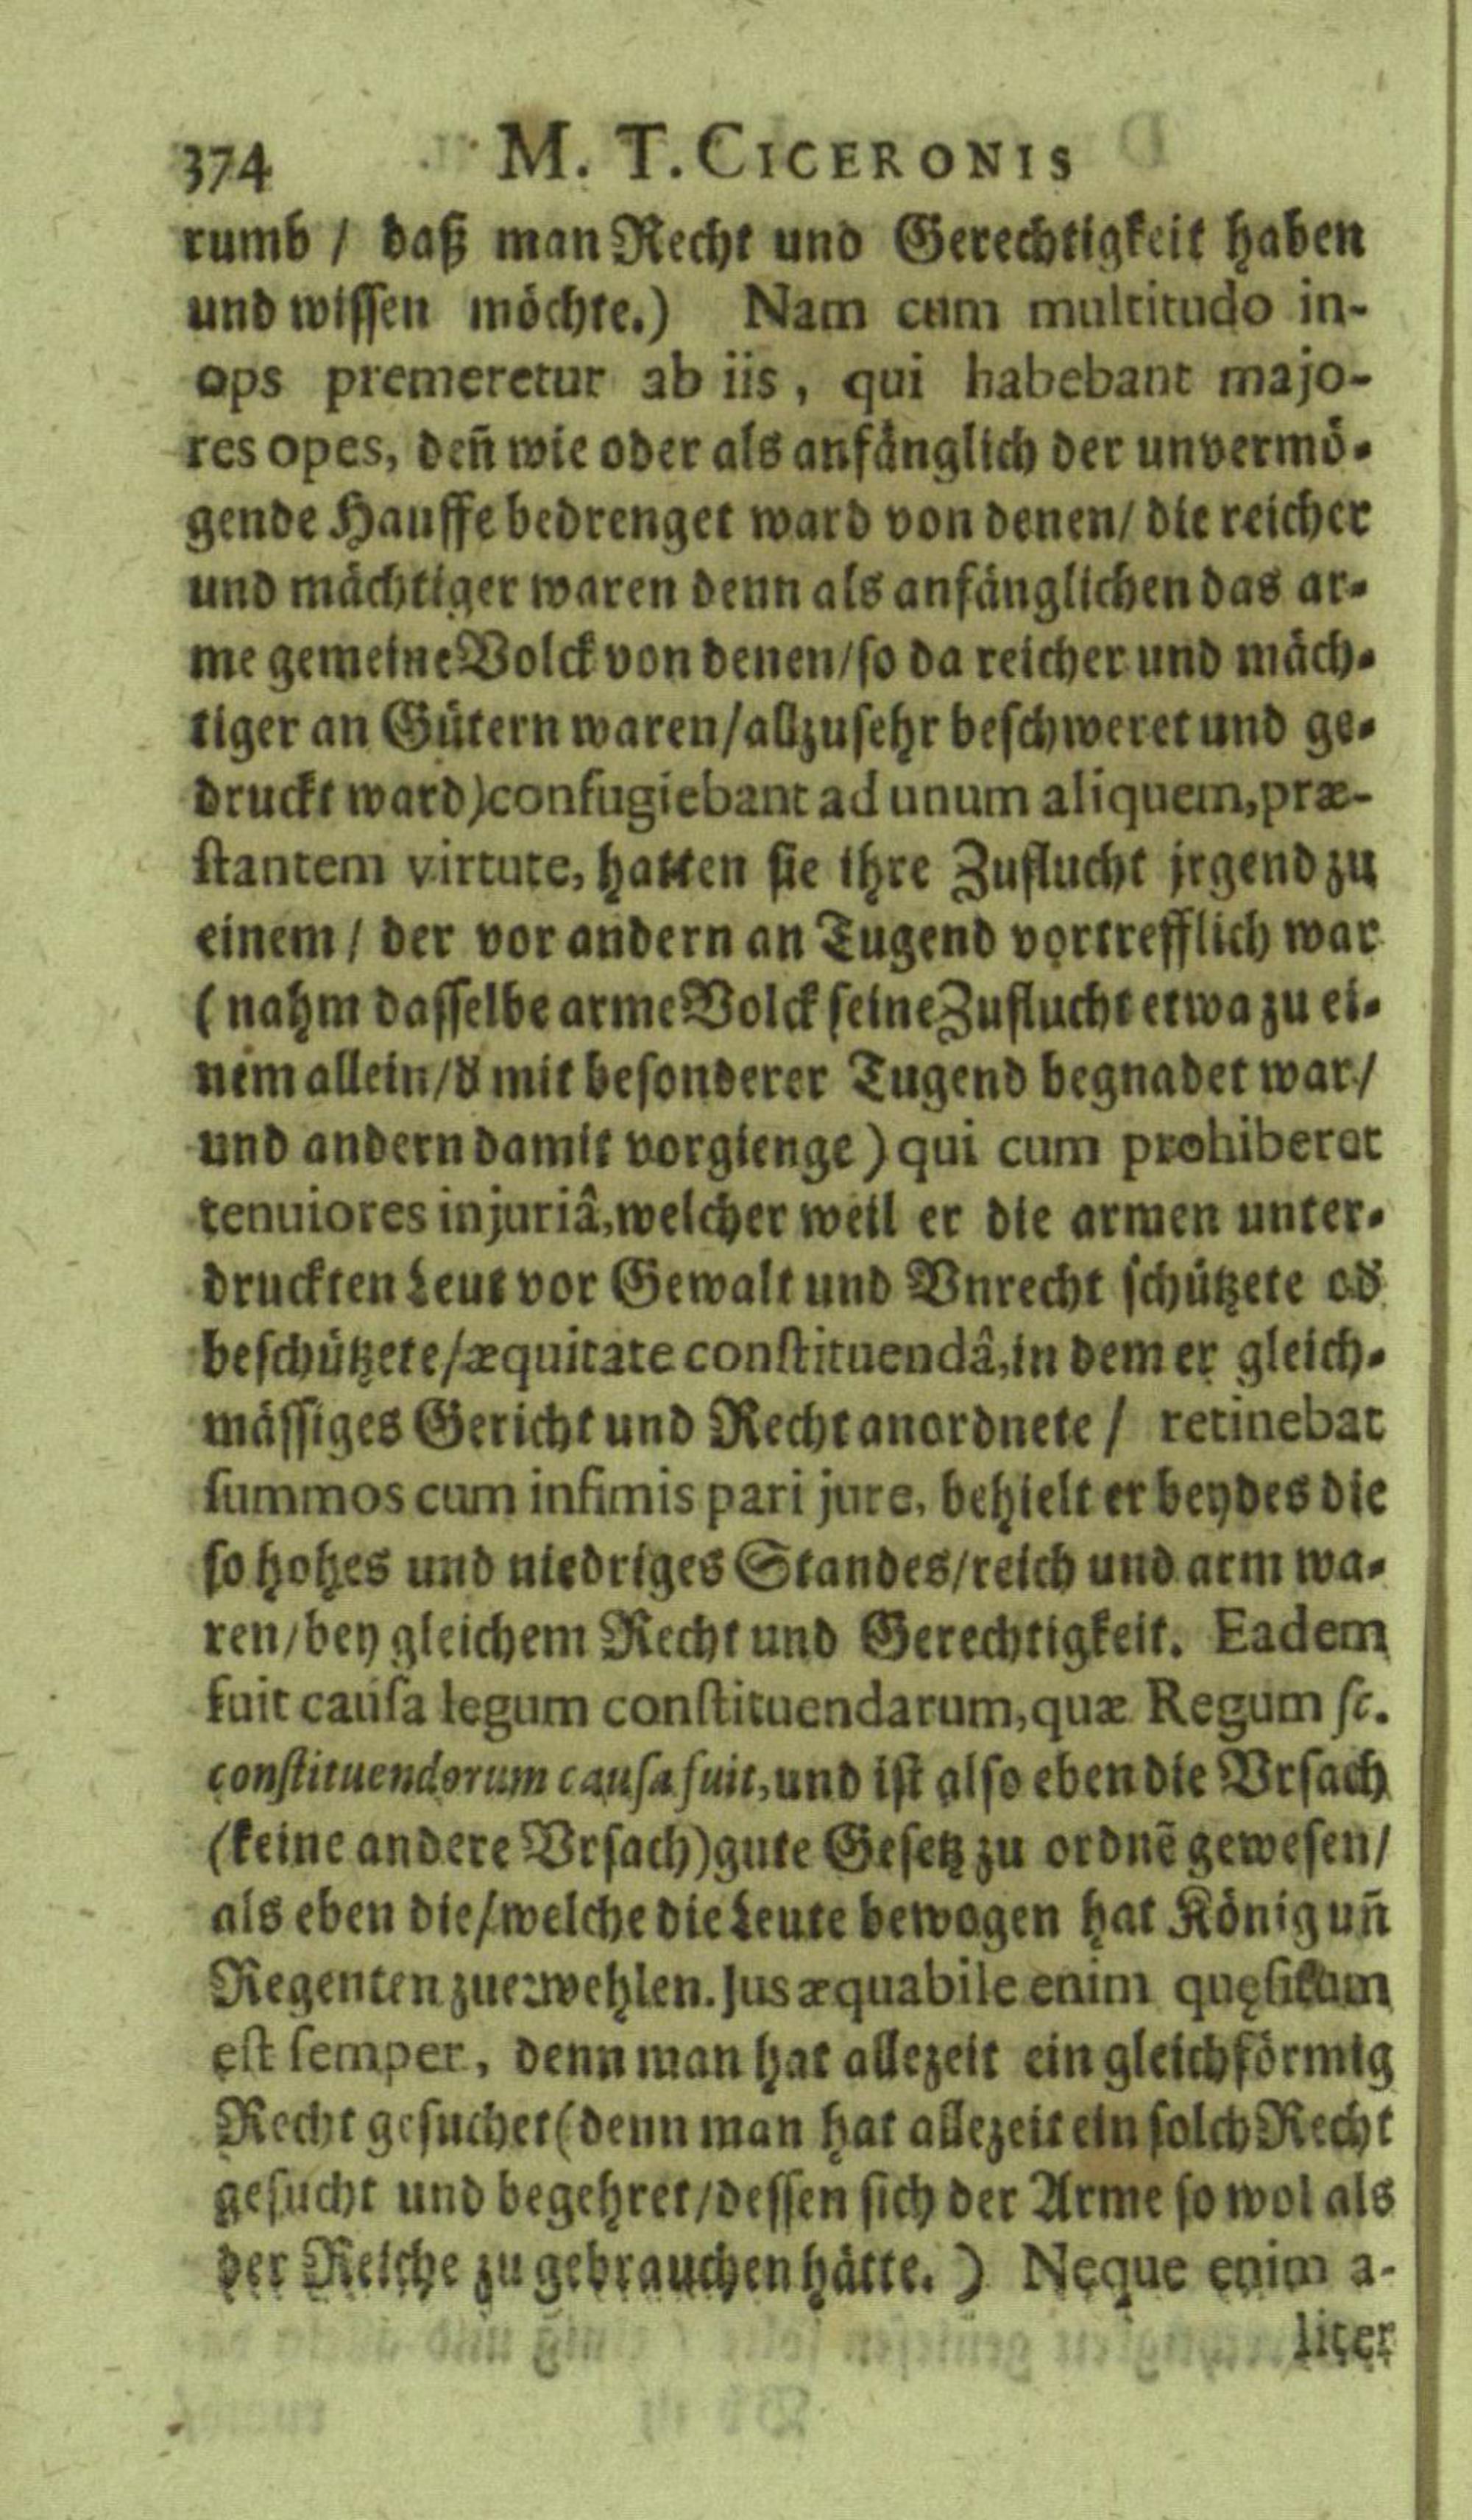 374 M. T. CICERONIS
rumb / daß man Recht und Gerechtigkeit haben
und wissen möchte.) Nam cum multitudo in-
ops premeretur ab iis, qui habebant majo-
res opes, deñ wie oder als anfänglich der unvermö-
gende Hauffe bedrenget ward von denen/ die reicher
und mächtiger waren denn als anfänglichen das ar-
me gemeine Volck von denen/so da reicher und mäch-
tiger an Gütern waren/allzusehr beschweret und ge-
druckt ward)confugiebant ad unum aliquem,præ-
stantem virtute, hatten sie ihre Zuflucht jrgend zu
einem / der vor andern an Tugend vortrefflich war
(nahm dasselbe arme Volck seine Zuflucht etwa zu ei-
nem allein/d' mit besonderer Tugend begnadet war/
und andern damit vorgienge) qui cum prohiberet
tenuiores injuriâ,welcher weil er die armen unter-
druckten Leut vor Gewalt und Vnrecht schützete od'
beschützete/æquitate constituendâ,in dem er gleich-
mässiges Gericht und Recht anordnete / retinebat
summos cum infimis pari jure, behielt er beydes die
so hohes und niedriges Standes/reich und arm wa-
ren/bey gleichem Recht und Gerechtigkeit. Eadem
fuit causa legum constituendarum,quæ Regum sc.
constituendorum causa fuit,und ist also eben die Vrsach
(keine andere Vrsach)gute Gesetz zu ordnē gewesen/
als eben die/welche die Leute bewogen hat König uñ
Regenten zuerwehlen. Jus æquabile enim quęsitum
est semper, denn man hat allezeit ein gleichförmig
Recht gesuchet(denn man hat allezeit ein solch Recht
gesucht und begehret/dessen sich der Arme so wol als
der Reiche zu gebrauchen hätte.) Neque enim a-
liter